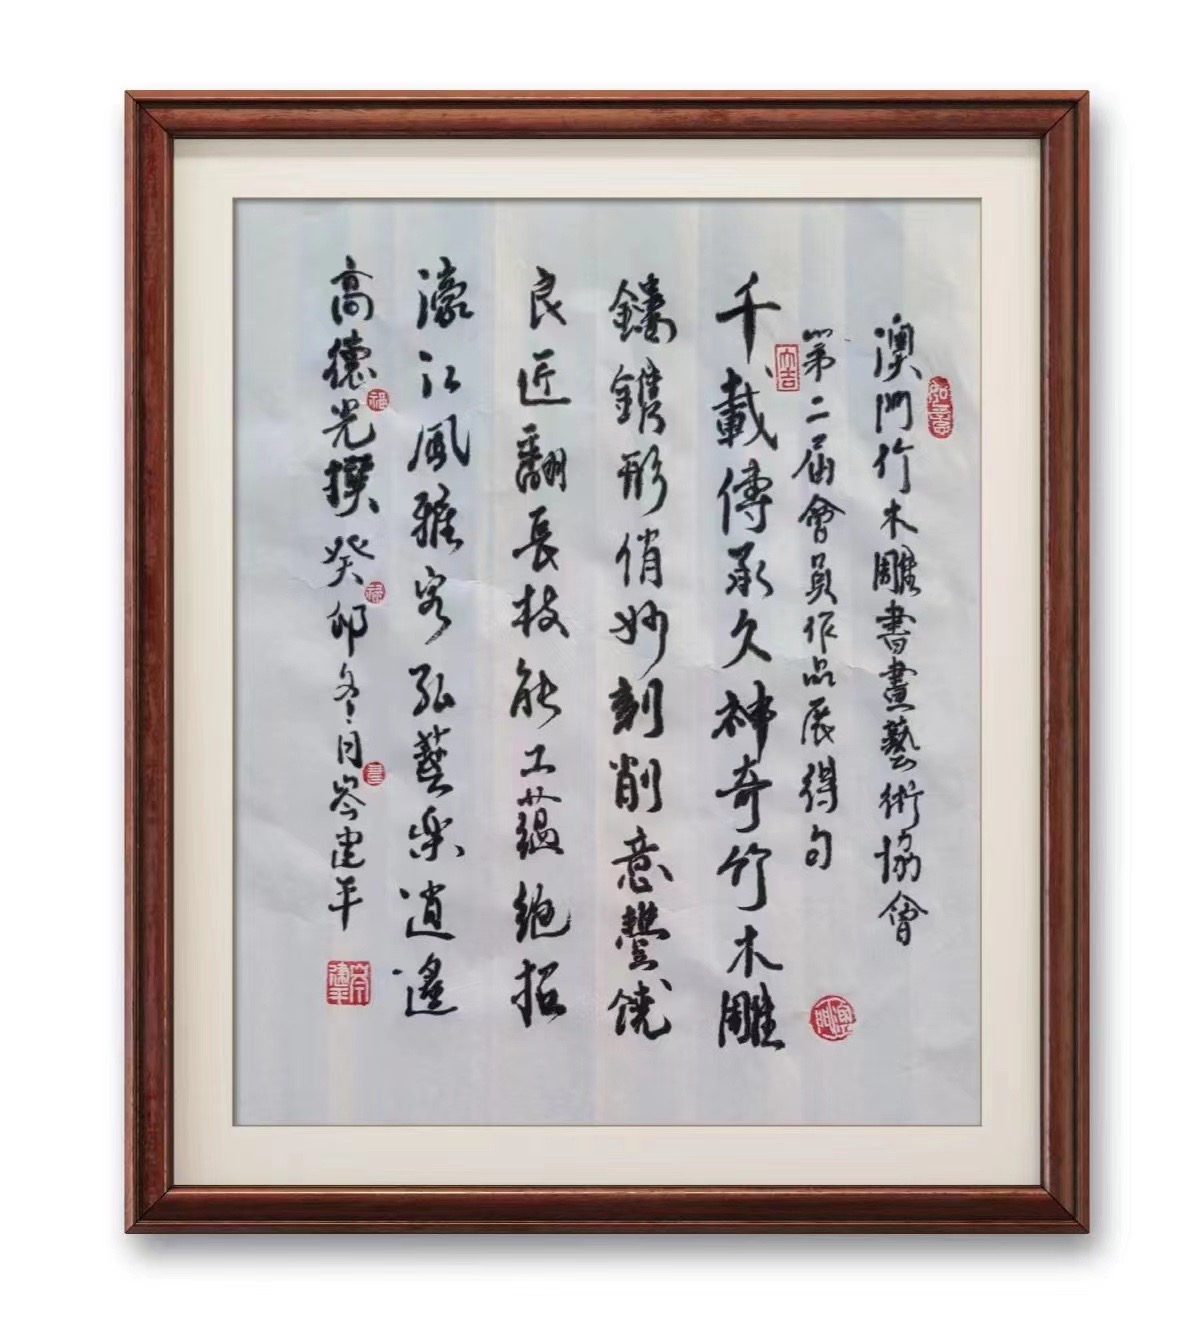 澳門竹木雕書畫藝術協會
如意
第二届會員作品展得句
大吉
澳門
千載傳承久神奇竹木雕
鏤鐫形俏妙刻削意豐饒
良匠翻長技能工蘊絶招
濠江風雅客弘藝樂逍遙
高德光撰癸卯冬月岑建平
岑建平